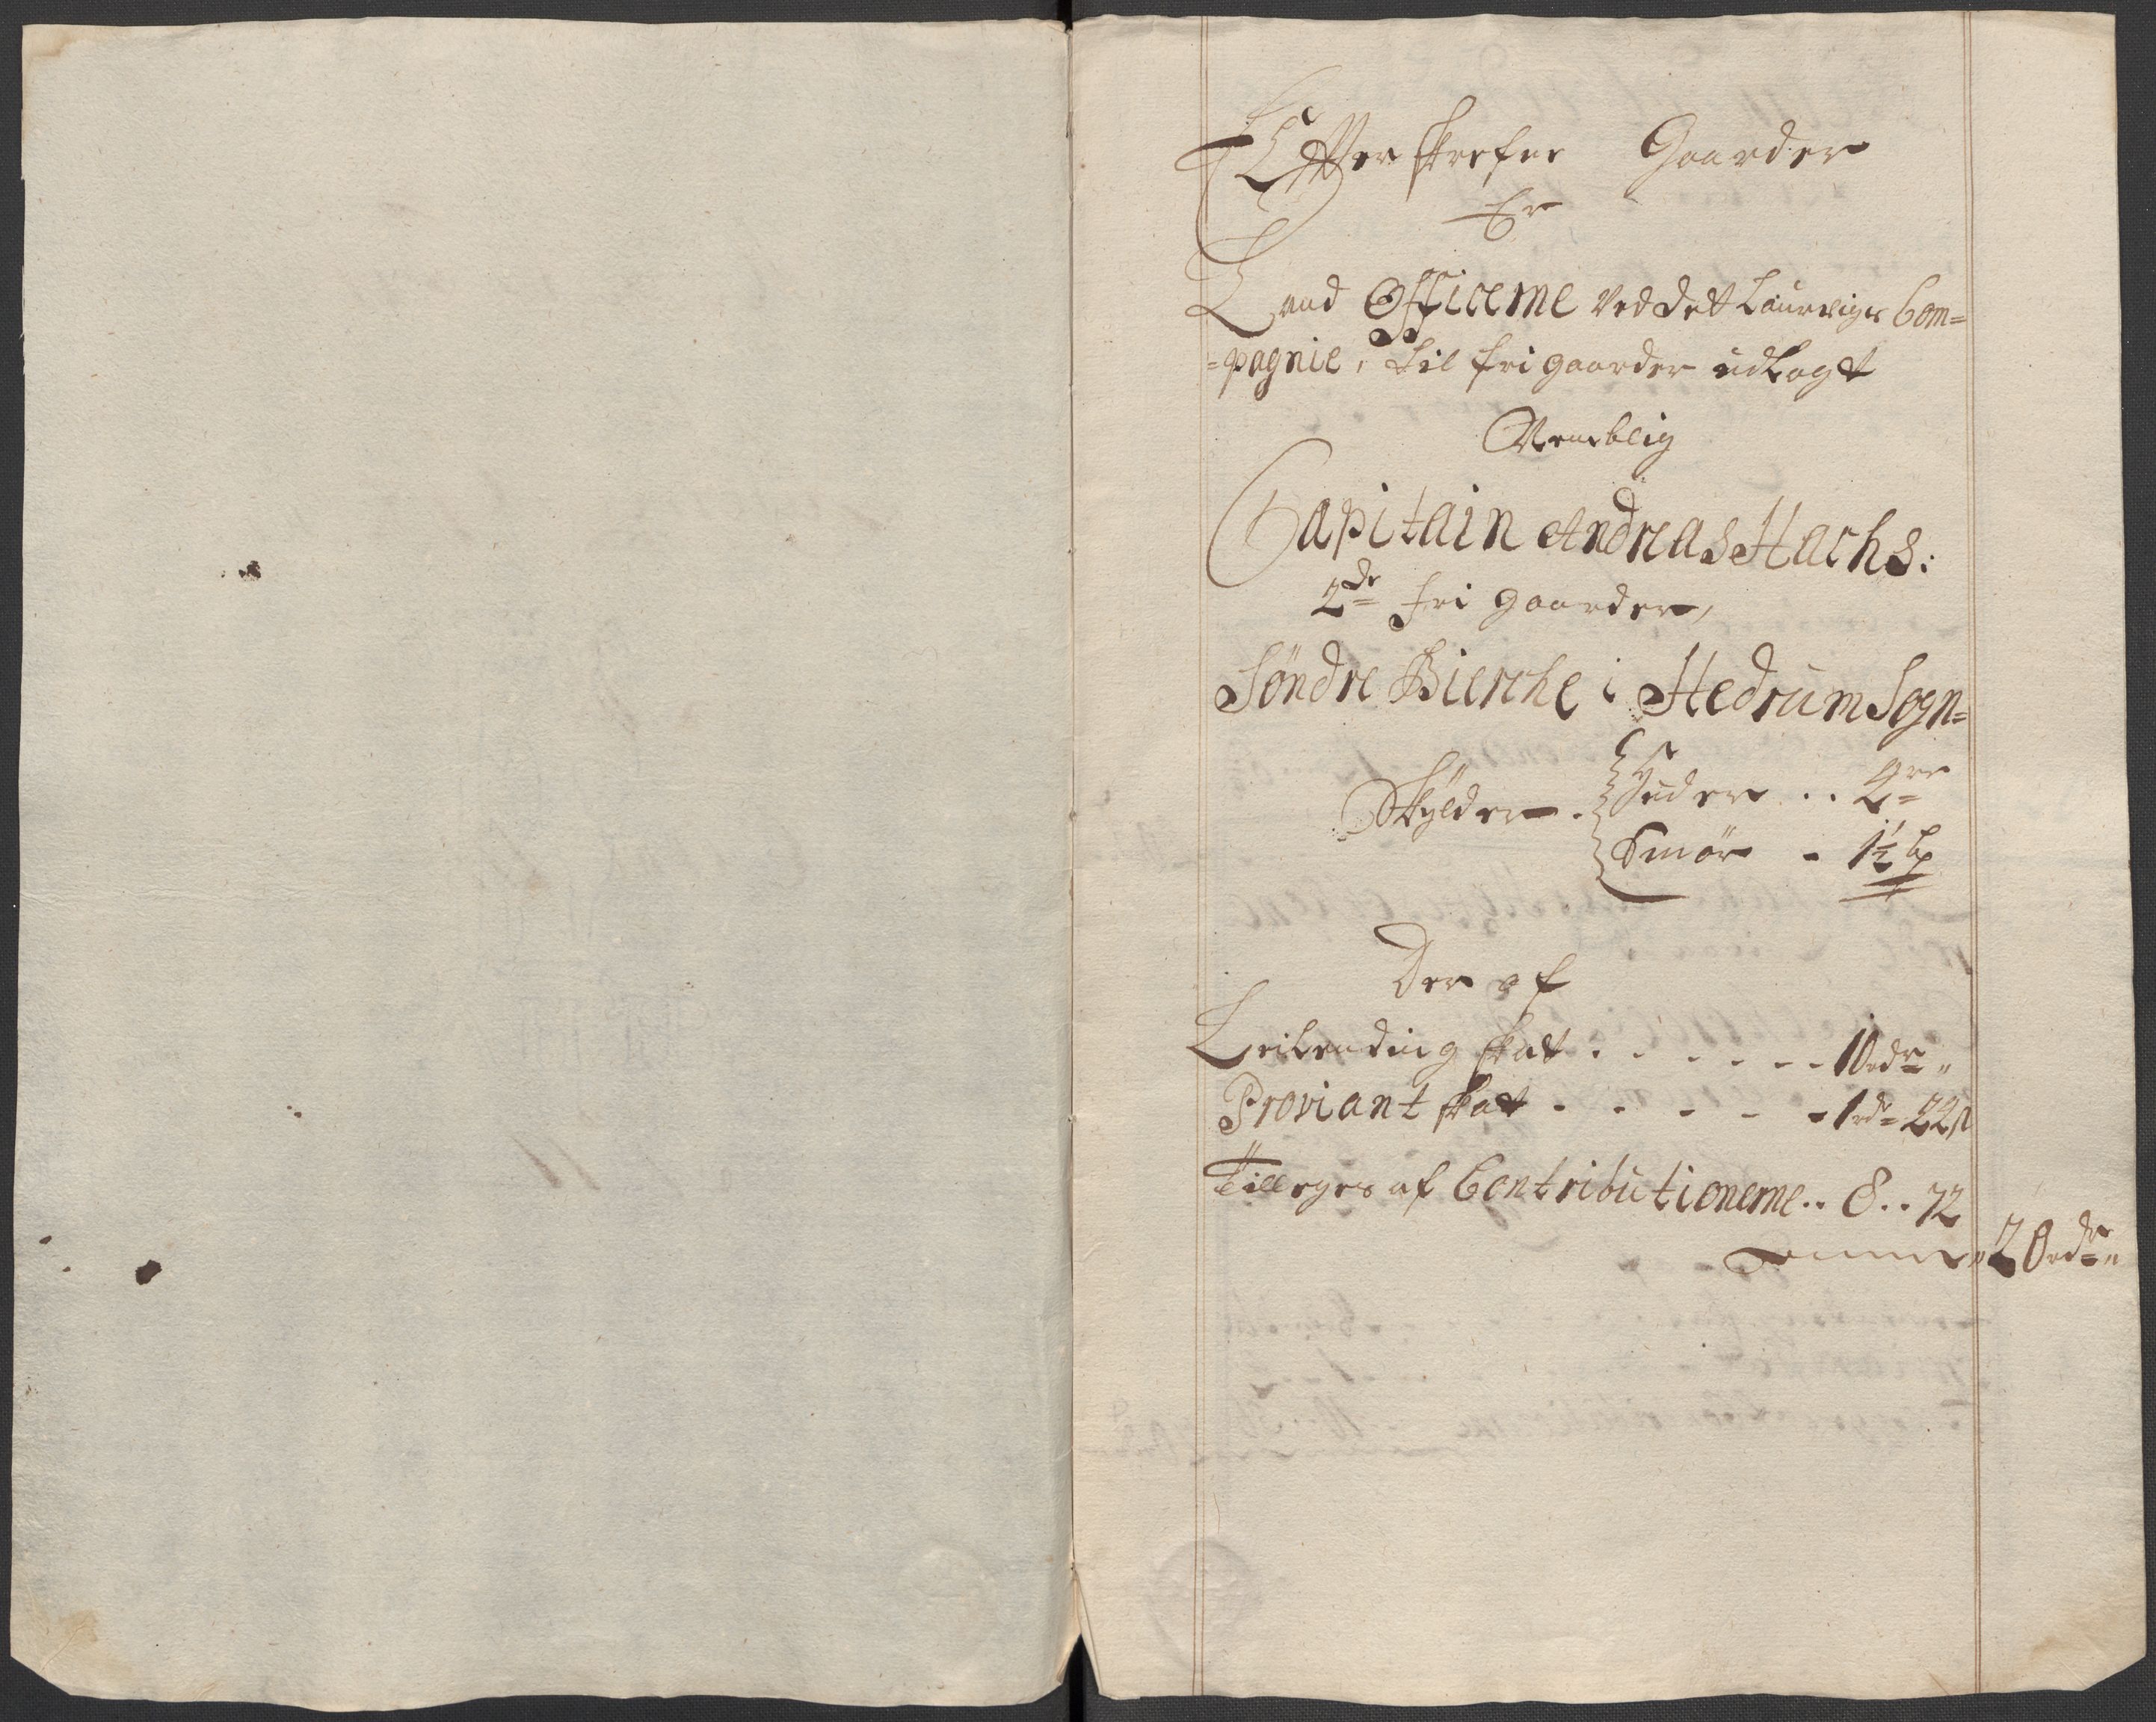 Efterskrefne Gaarder
Er
Land Officerne ved det Laurvigs Com=
=pagnie, til fri gaarder udlagt
Nemblig
Capitain Andreas Hachs:
2de fri gaarder,
Søndre Bierche i Hedrum Sogn=
Skylder . Huder .. 2
Smør - 1½ Lp
Der af
Leilending skat . - - - - - 10 rdr "
Proviant skat - - - - - 1 rd 22
Tilleges af Contributionerne .. 8 .. 72
" 20 rdr "